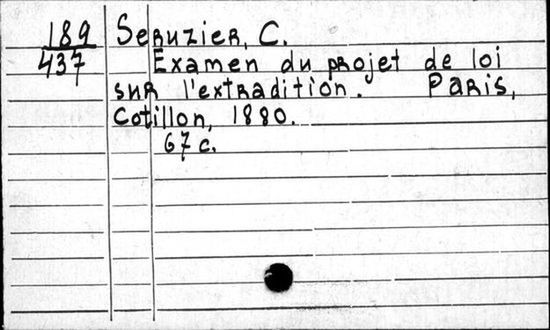 189 Seruzier, C.
437 Examen du projet de loi
sur l'extradition. Paris,
Cotillon, 1880.
67 c.